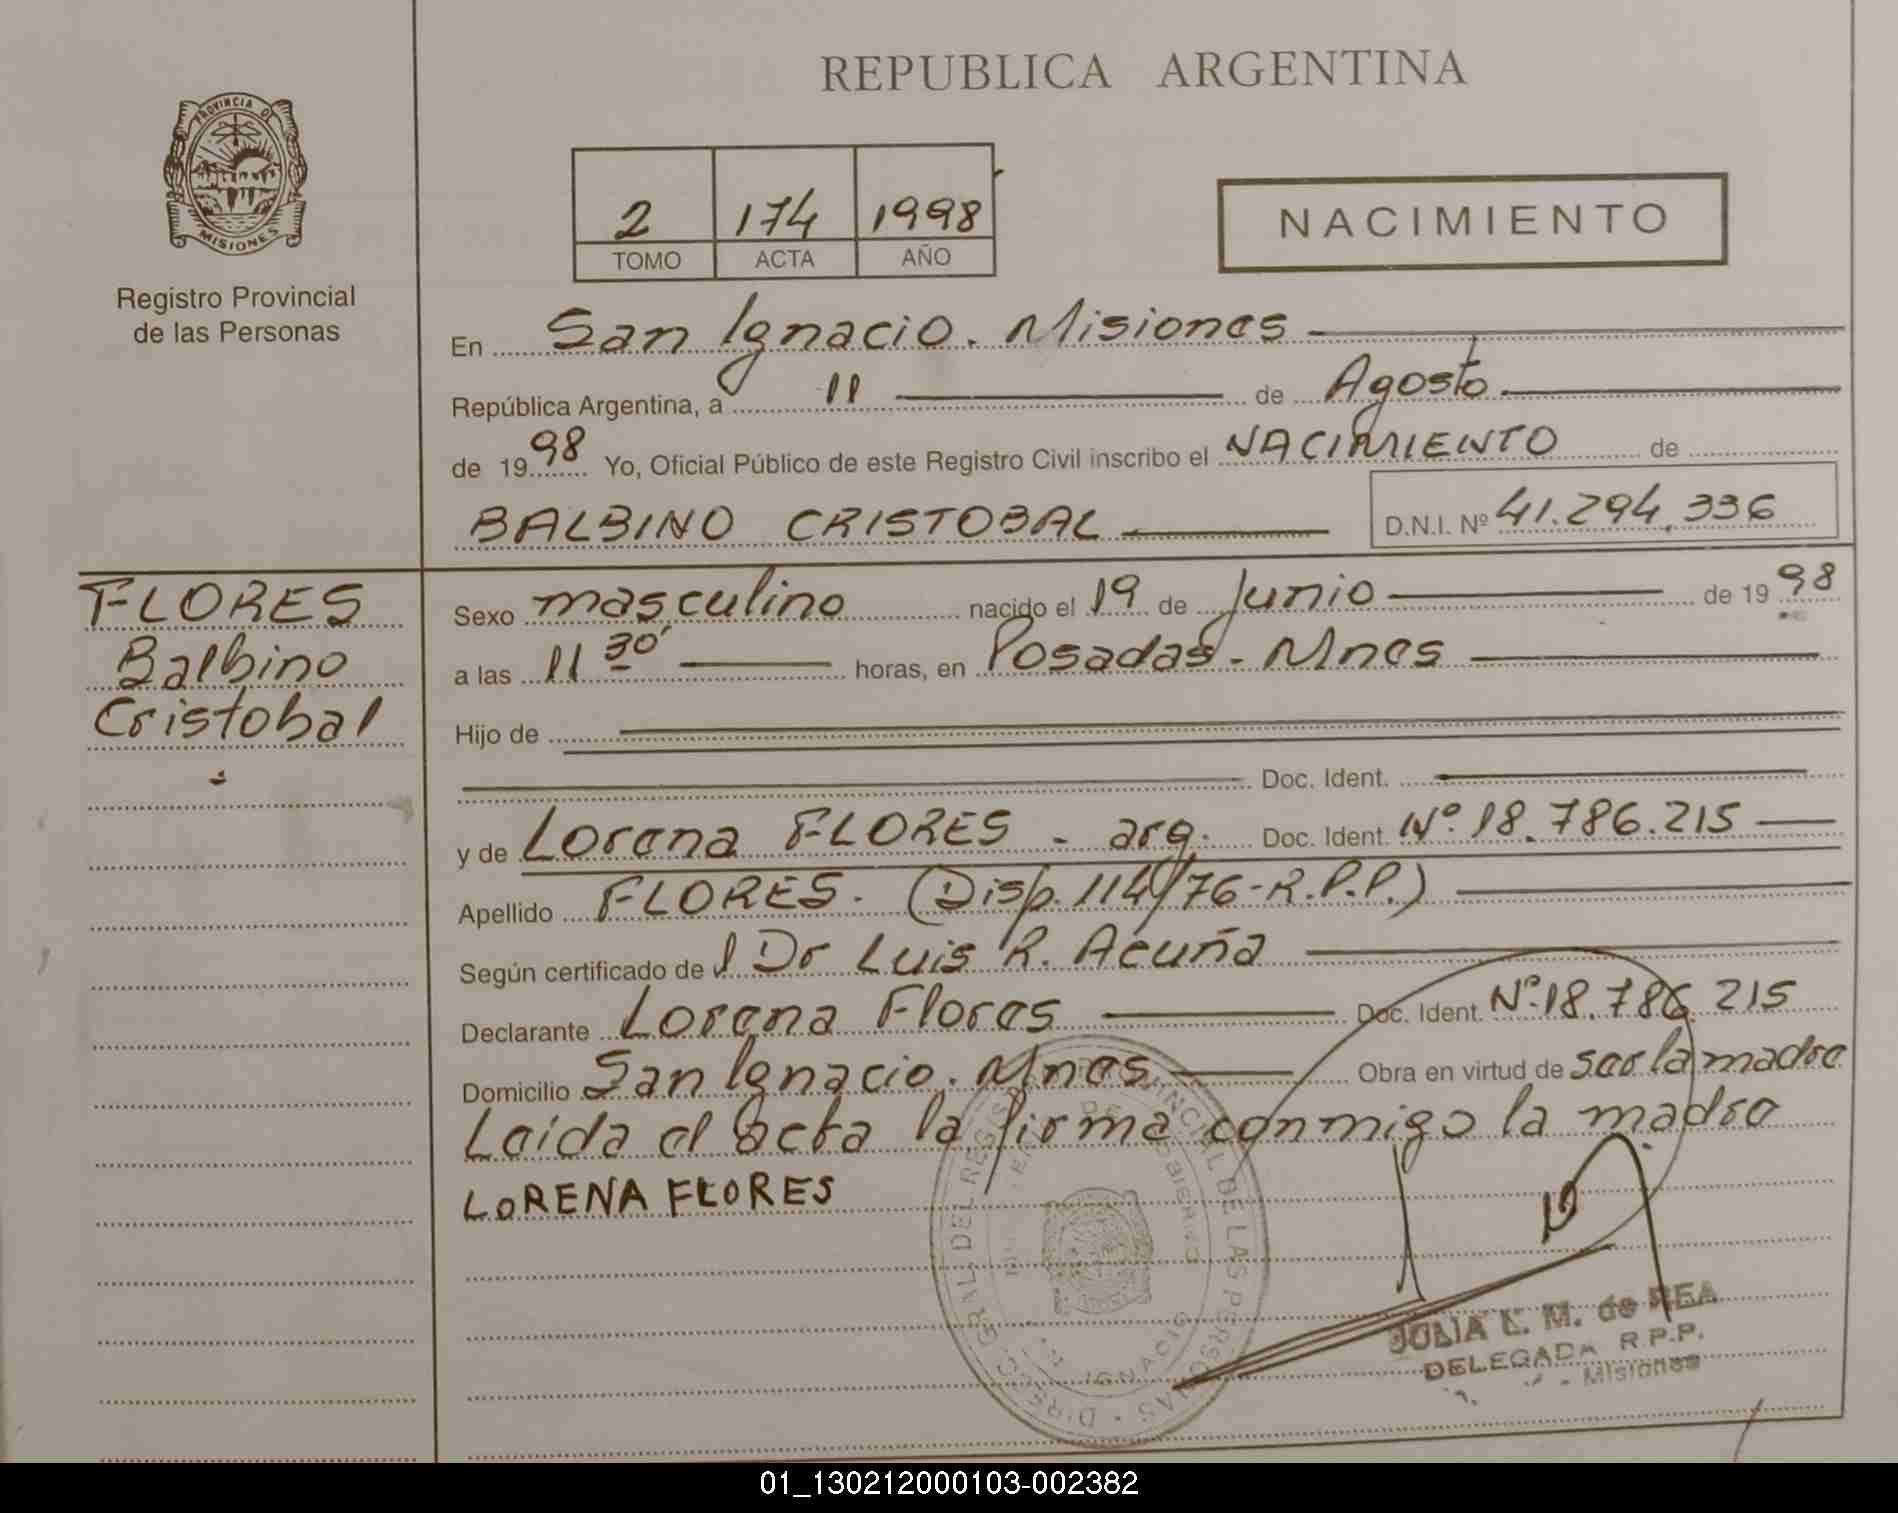 REPUBLICA ARGENTINA
PROVINCIA DE
MISIONES
Registro Provincial
de las Personas
2 174 1998
TOMO ACTA AÑO
NACIMIENTO
En San Ignacio. Misiones
República Argentina, a 11 de Agosto
de 1998 Yo, Oficial Público de este Registro Civil inscribo el NACIMIENTO de
BALBINO CRISTOBAL D.N.I. Nº 41.294.336
FLORES
Balbino
Cristobal
Sexo masculino nacido el 19 de Junio de 1998
a las 11 30' horas, en Posadas - Mnes
Hijo de
Doc. Ident.
y de Lorena FLORES - arg. Doc. Ident. Nº 18.786.215
Apellido FLORES. (Disp. 114/76-R.P.P.)
Según certificado del Dr Luis R. Acuña
Declarante Lorena Flores Doc. Ident. Nº 18.786.215
Domicilio San Ignacio. Mnes Obra en virtud de ser la madre
Leída el acta la firma conmigo la madre
LORENA FLORES
DIREC. GRAL. DEL REGISTRO PROVINCIAL DE LAS PERSONAS
IGNACIO
JULIA L. M. de REA
DELEGADA R.P.P.
Misiones
01_130212000103-002382